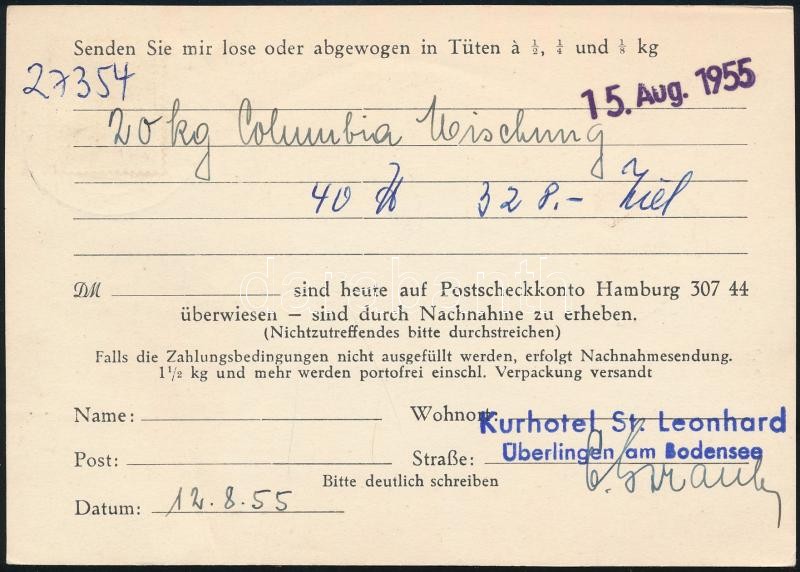 Senden Sie mir lose oder abgewogen in Tüten à ½, ¼ und ⅛ kg
27354
15. Aug. 1955
20 kg Columbia Mischung
40 ℔ 328.- Ziel
DM sind heute auf Postscheckkonto Hamburg 307 44
überwiesen – sind durch Nachnahme zu erheben.
(Nichtzutreffendes bitte durchstreichen)
Falls die Zahlungsbedingungen nicht ausgefüllt werden, erfolgt Nachnahmesendung.
1½ kg und mehr werden portofrei einschl. Verpackung versandt
Name: Wohnort:
Kurhotel St. Leonhard
Überlingen am Bodensee
Post: Straße:
Bitte deutlich schreiben
Datum: 12.8.55
darabanth